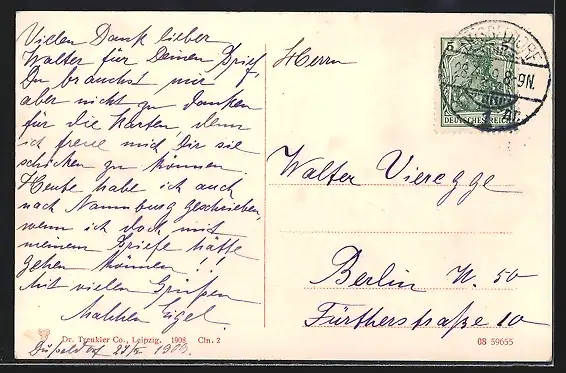 Vielen Dank lieber
Walter für Deinen Brief,
Du brauchst mir
aber nicht zu danken
für die Karten, denn
ich freue mich Dir sie
schicken zu können.
Heute habe ich auch
nach Naumburg geschrieben,
wenn ich doch mit
meinem Briefe hätte
gehen können!!
Mit vielen Grüßen
Malchen
Düsseldorf 1909.
Dr. Trenkler Co., Leipzig. 1908 Cln. 2
Herrn
Walter Vieregge
Berlin W. 50
Fürtherstraße 10
5
DEUTSCHES REICH
8-9N.
08 59655